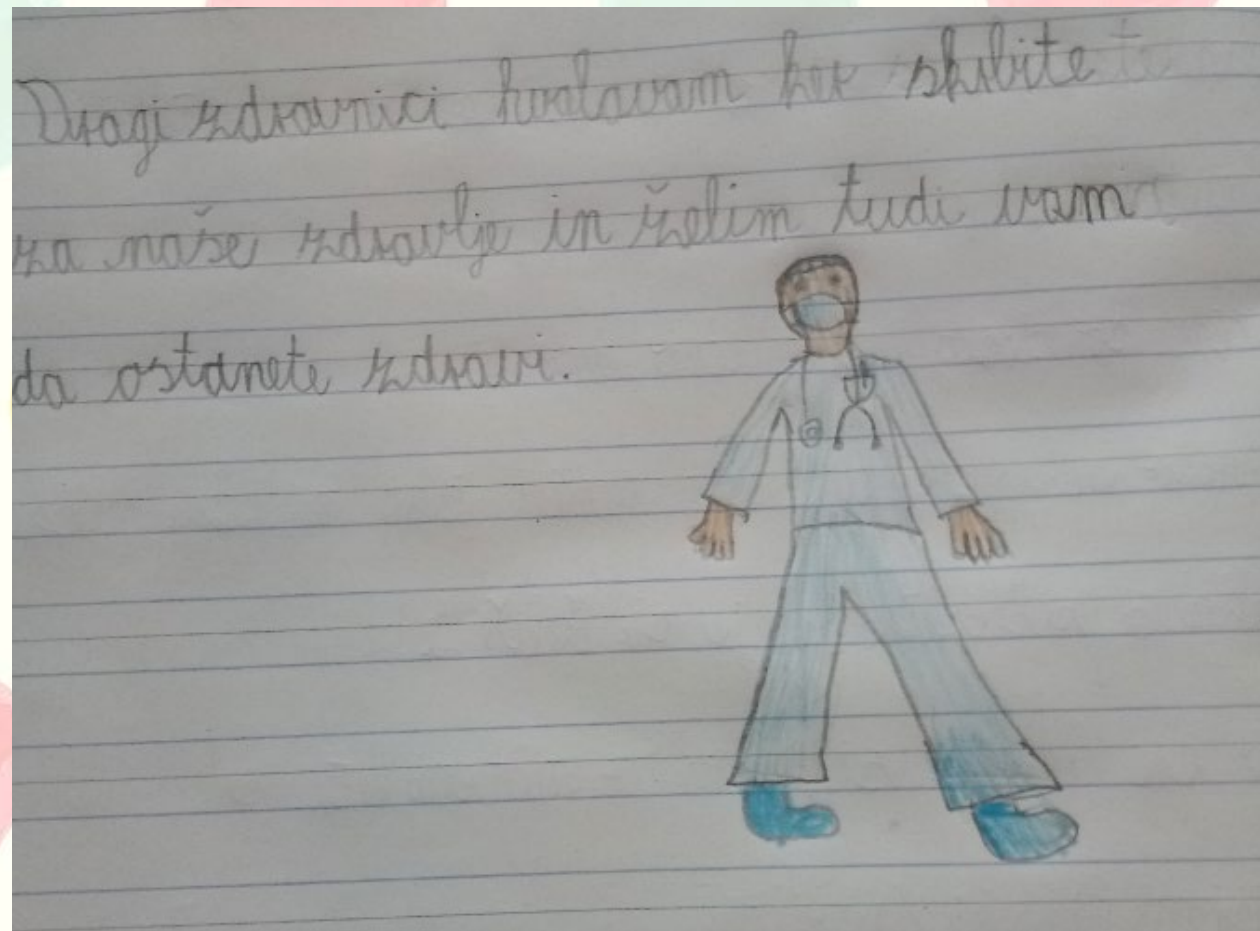 Dragi zdravnici hvalavam ker skrbite
za naše zdravlje in želim tudi vam
da ostanete zdravi.